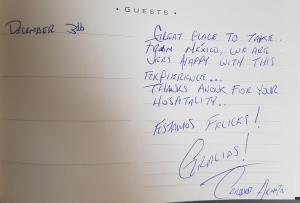 • GUESTS •
DECEMBER
GREAT PLACE TO TAKE..
FROM MÉXICO, WE ARE
VERY HAPPY WITH THIS
EXPIERIENCE...
THANKS ANOUK FOR YOUR
HOSPITALITY..
ESTAMOS FELICES!
GRACIAS!